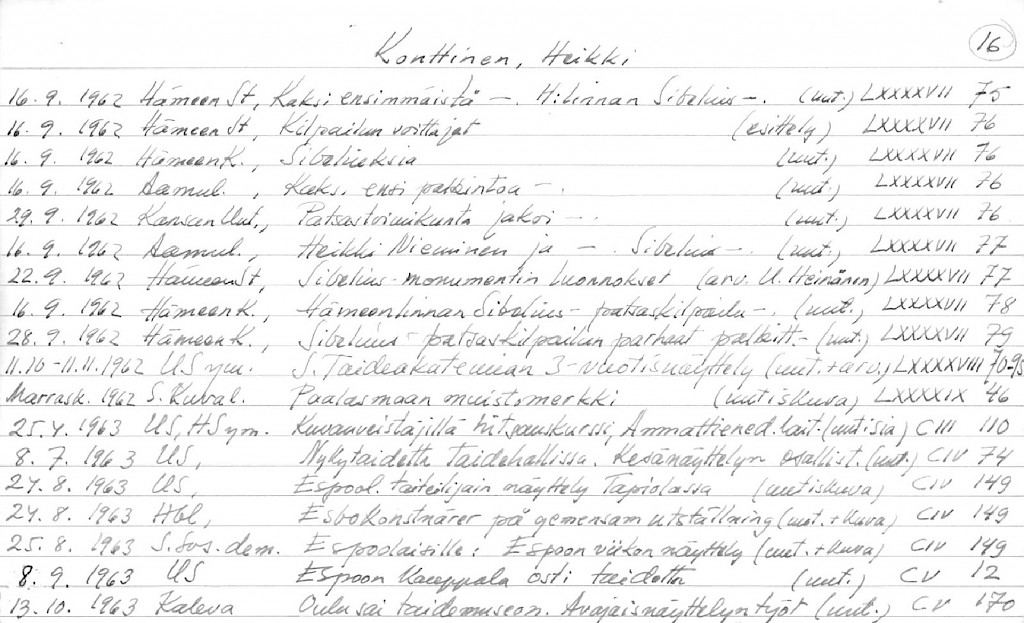 16
Konttinen, Heikki
16.9. 1962 Hämeen St, Kaksi ensimmäistä –. H:linnan Sibelius –. (uut.) LXXXXVII 75
16.9. 1962 Hämeen St, Kilpailun voittajat (esittely) LXXXXVII 76
16.9. 1962 HämeenK., Sibeliuksia (uut.) LXXXXVII 76
16.9. 1962 Aamul., Kaks. ensi palkintoa –. (uut.) LXXXXVII 76
29.9. 1962 Kansan Uut., Patsastoimikunta jakoi –. (uut.) LXXXXVII 76
16.9. 1962 Aamul. Heikki Nieminen ja –. Sibelius –. (uut.) LXXXXVII 77
22.9. 1962 HämeenSt, Sibelius-monumentin luonnokset (arv. U. Heinänen) LXXXXVII 77
16.9. 1962 HämeenK., Hämeenlinnan Sibelius-patsaskilpailu –. (uut.) LXXXXVII 78
28.9. 1962 HämeenK., Sibelius-patsaskilpailun parhaat palkitt.– (uut.) LXXXXVII 79
11.10–11.11.1962 US ym. S. Taideakatemian 3-vuotisnäyttely (uut.+arv.) LXXXXVIII 70-95
Marrask. 1962 S. Kuval. Paalasmaan muistomerkki (uutiskuva) LXXXXIX 46
25.4. 1963 US, HS ym. Kuvanveistäjillä hitsauskurssi, Ammattiened.lait. (uutisia) CIII 110
8.7. 1963 US, Nykytaidetta Taidehallissa. Kesänäyttelyn osallist. (uut.) CIV 74
24.8. 1963 US, Espool. taiteilijain näyttely Tapiolassa (uutiskuva) CIV 149
24.8. 1963 Hbl, Esbokonstnärer på gemensam utställning (uut.+kuva) CIV 149
25.8. 1963 S.Sos.dem. Espoolaisille: Espoon viikon näyttely (uut.+kuva) CIV 149
8.9. 1963 US Espoon Kauppala osti taidetta (uut.) CV 12
13.10. 1963 Kaleva Oulu sai taidemuseon. Avajaisnäyttelyn työt (uut.) CV 170